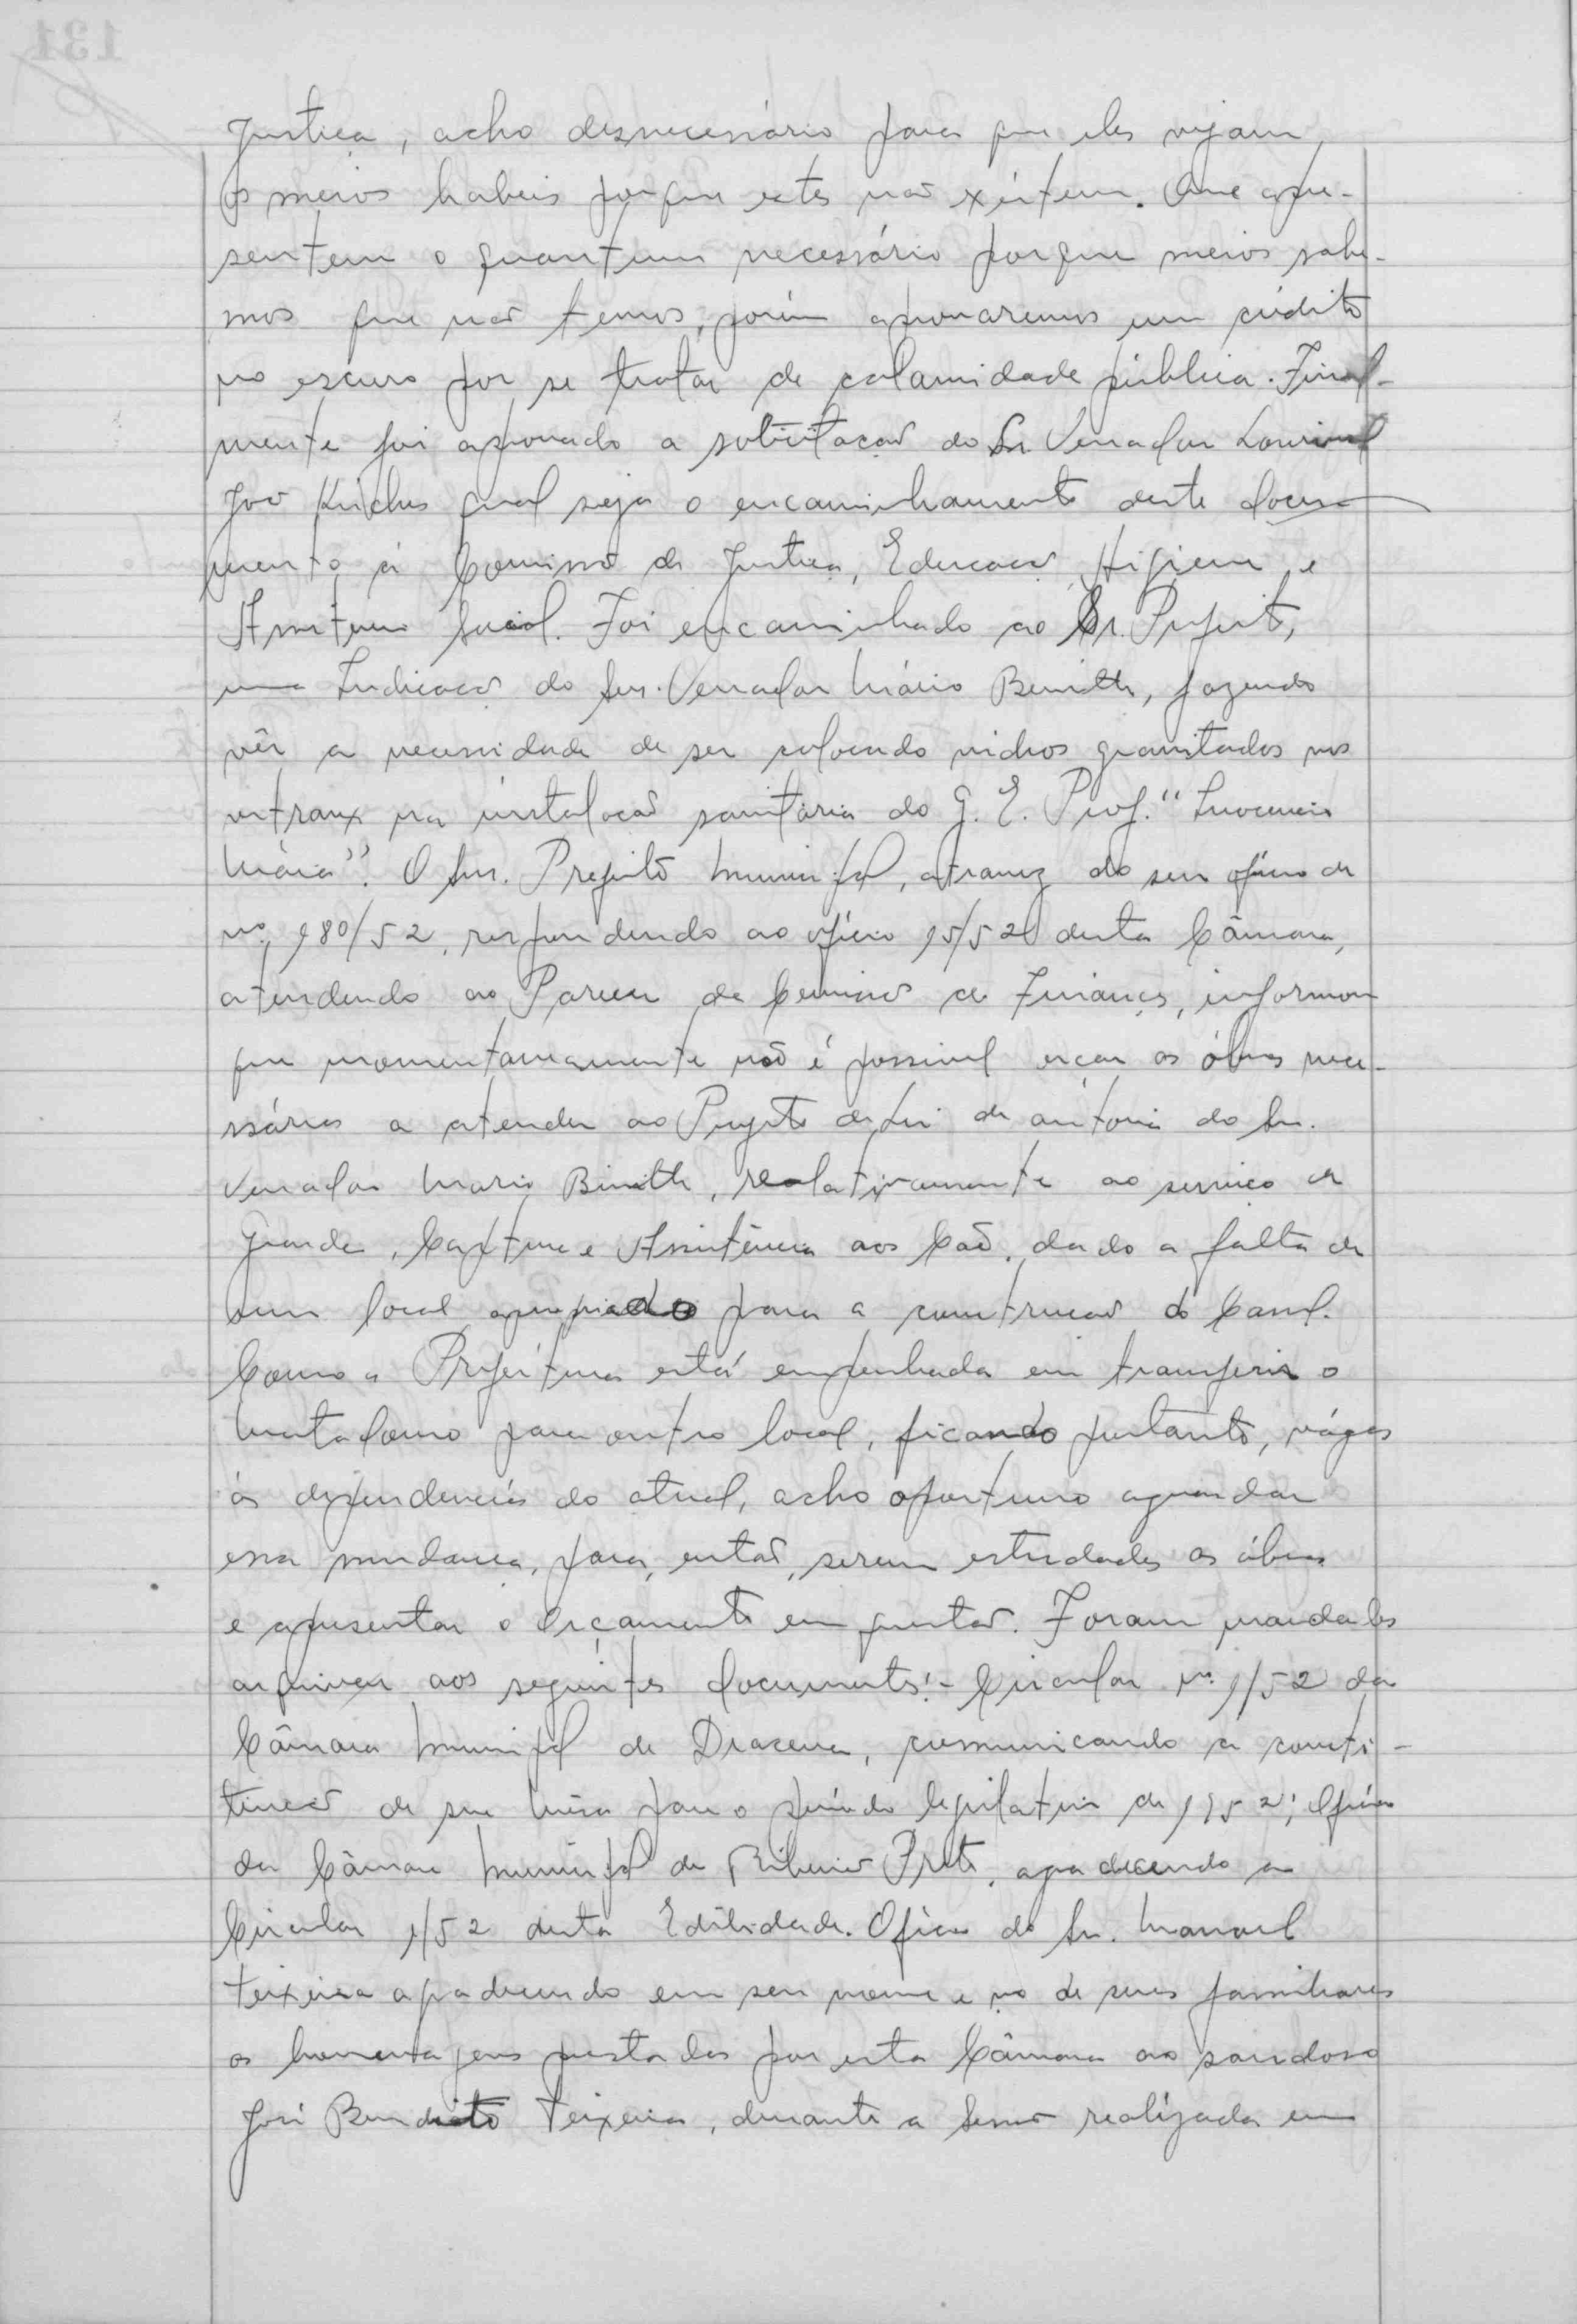 131
Justiça, acho desnecessário para que eles vejam
os meios habeis porque estes não existem. Que apre-
sentem o quantum necessário porque meios sabe-
mos que não temos, porém aprovaremos um crédito
no escuro por se tratar de calamidade pública. Final-
mente foi aprovado a solicitação do Sr. Vereador Lourival
João qual seja o encaminhamento deste docu-
mento á Comissão de Justiça, Educação, Higiene e
Assistencia Social. Foi encaminhado ao Sr. Prefeito,
uma Indicação do Snr. Vereador Mário, fazendo
vêr a necessidade de ser colocado vidros granitados nos
vitraux na instalação sanitária do G. E. Prof. "Inocencio
Maia". O Snr. Prefeito Municipal, atravez do seu oficio de
nº 180/52, respondendo ao oficio 15/52 desta Câmara,
atendendo ao Parecer da Comissão de Finanças, informou
que momentaneamente não é possivel orçar as óbras nece-
ssárias a atender ao Projeto de Lei de autoria do Sr.
Vereador Mario, relativamente ao serviço de
Guarda, Captura e Assistência aos Cão, dado a falta de
um local apropriado para a construção do Canil.
Como a Prefeitura está empenhada em transferir o
Matadouro para outro local, ficando portanto, vágas
ás dependencias do atual, acho oportuno aguardar
essa mudança, para, então, serem estudadas as óbras
e apresentar o Orçamento em questão. Foram mandados
arquivar aos seguintes documentos:- Circular nº 1/52 da
Câmara Municipal de Dracena, comunicando a consti-
tuição de sua Mêsa para o período legislativo de 1952; Oficio
da Câmara Municipal de Ribeirão Preto, agradecendo a
Circular 1/52 desta Edilidade. Oficio do Sr. Manoel
Teixeira agradecendo em seu nome e no de seus familiares
as homenagens prestadas por esta Câmara ao saudoso
José Benedito Teixeira, durante a Sessão realizada em